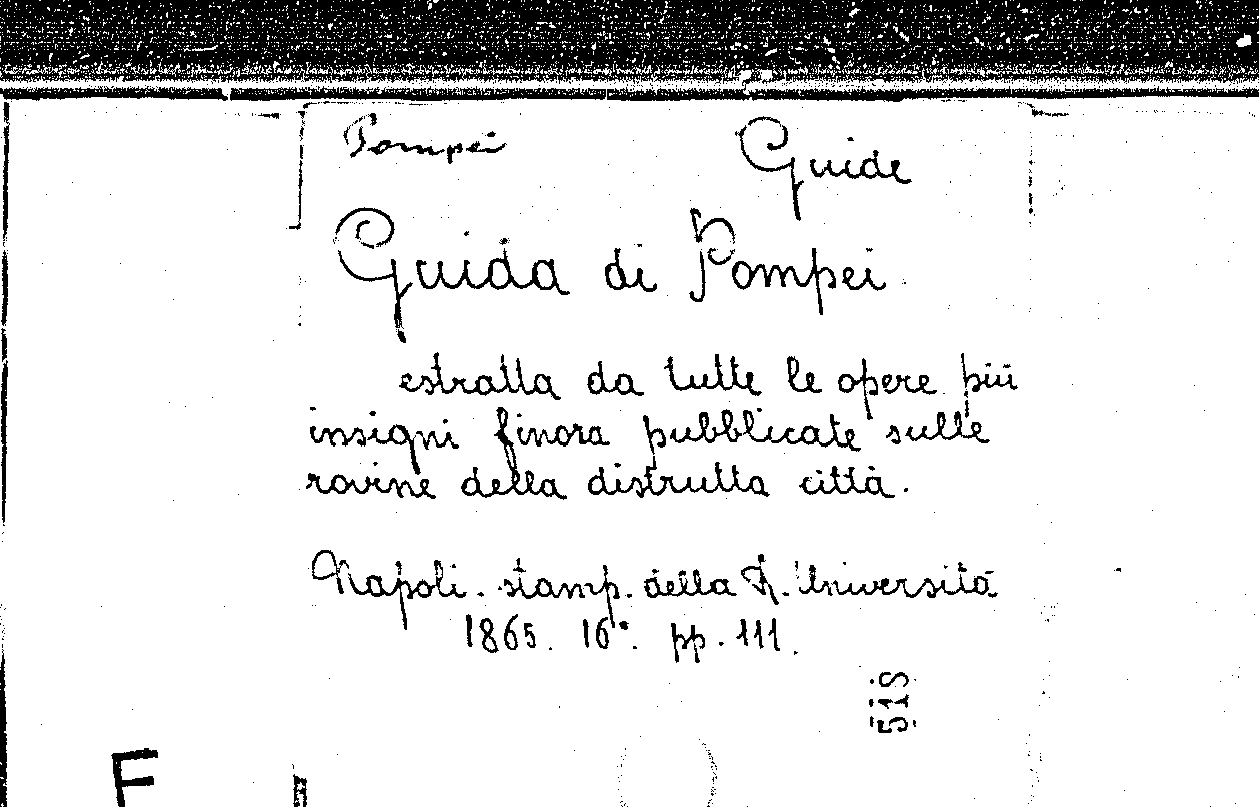 Pompei Guide
Guida di Pompei
estratta da tutte le opere più
insigni finora pubblicate sulle
rovine della distrutta città.
Napoli. stamp. della R. Università
1865. 16°. pp. 111.
51S
F